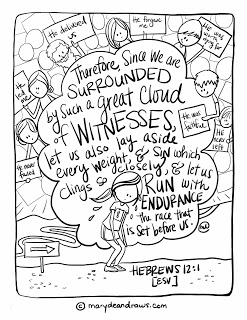 He delivered
us
He forgave
me
He was
worth
waiting for
He
chose
me
He was
faithful
He never
failed
He
never
left
Therefore, Since We are
SURROUNDED
by Such a Great Cloud
of WITNESSES,
let us also lay aside
every weight, & sin which
clings so closely, & let us
RUN with
ENDURANCE
the race that
is Set before us.
HEBREWS 12:1
[ESV]
© marydeandraws.com